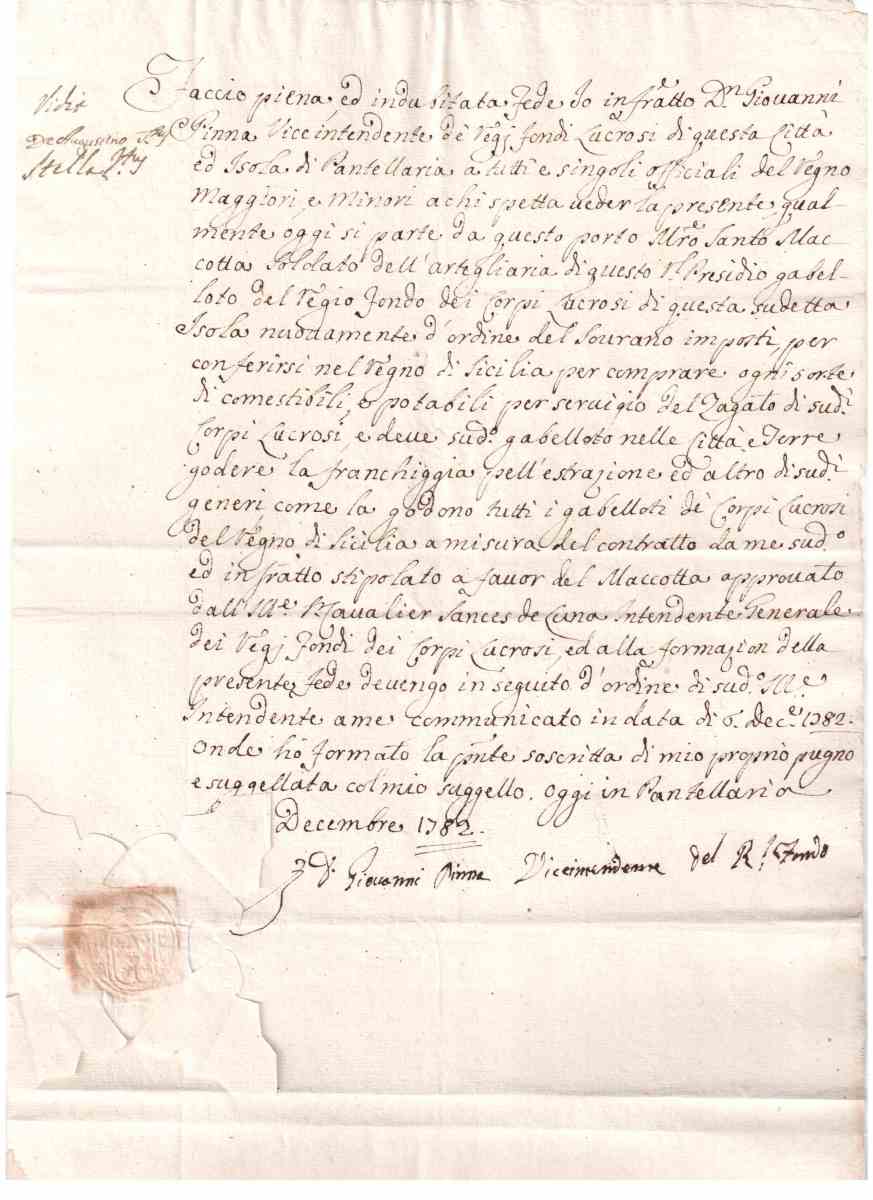 Vidit
De Augustino
Stella
Faccio piena ed indubitata fede Io infratto Dn. Giovanni
Pinna Viceintendente de Regj Fondi Lucrosi di questa Città
ed Isola di Pantellaria a tutti e singoli officiali del Regno
Maggiori, e Minori a chi spetta veder la presente, qual-
mente oggi si parte da questo porto Mro. Santo Mac-
cotta Soldato dell'artegliaria di questo Rl. Presidio gabel-
loto del Regio Fondo dei Corpi Lucrosi di questa sudetta
Isola nuovamente d'ordine del Sourano imposti, per
conferirsi nel Regno di Sicilia per comprare ogni sorte
di comestibili, e potabili per servigio del Zagato di sudi.
Corpi Lucrosi, e deve sudo. gabelloto nelle Città e Terre
godere la franchiggia pell'estrazione ed altro di sudi.
generi come la godono tutti i gabelloti de Corpi Lucrosi
del Regno di Sicilia a misura del contratto da me sudo.
ed infratto stipolato a favor del Maccotta approvato
dall'Ille. Cavalier Sances de Luna Intendente Generale
dei Regj Fondi dei Corpi Lucrosi, ed alla formazion della
presente fede devengo in seguito d'ordine di sudo. Ille.
Intendente a me communicato in data di 6. Dece. 1782.
Onde hò formato la pnte soscritta di mio proprio pugno
e suggellata col mio suggello. Oggi in Pantellaria
Decembre 1782.
D. Giovanni Pinna Viceintendente del Rl. Fondo